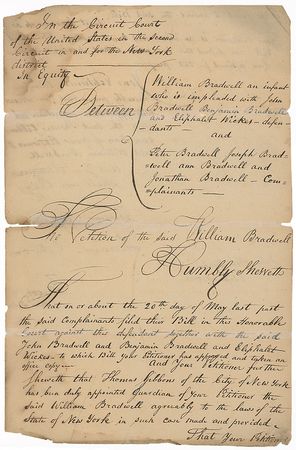 In the Circuit Court
of the United States in the Second
Circuit in and for the New York
district
In Equity
Between
William Bradwell an infant
who is impleaded with John
Bradwell Benjamin Bradwell
and Eliphalet Wickes – defen-
dants –
and
Peter Bradwell Joseph Brad-
well ann Bradwell and
Jonathan Bradwell – Com-
plainants –
The Petition of the said William Bradwell
Humbly Sheweth
That on or about the 20th day of May last past
the said Complainants filed their Bill in this Honorable
Court against this defendant together with the said
John Bradwell and Benjamin Bradwell and Eliphalet
Wickes – to which Bill your Petitioner has appeared and taken an
office copy –
And Your Petitioner further
Sheweth that Thomas Gibbons of the City of New York
has been duly appointed Guardian of Your Petitioner the
said William Bradwell agreeably to the laws of the
State of New York in such case made and provided
That Your Petition